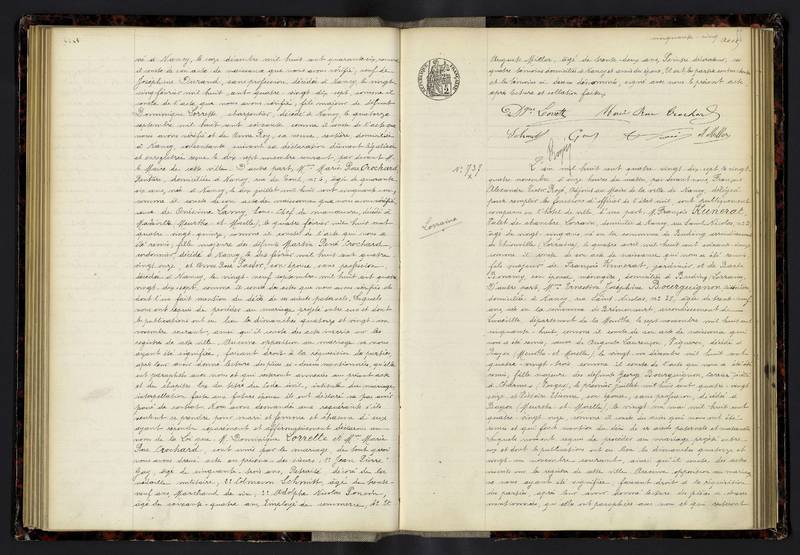 né à Nancy, le onze décembre mil huit cent quarante six, comme
il conste de son acte de naissance que nous avons vérifié, veuf de
Joséphine Durand, sans profession, décédée à Nancy le vingt
cinq février mil huit cent quatre vingt dix sept, comme il
conste de l'acte que nous avons vérifié, fils majeur de défunt
Dominique Lorrette, charpentier, décédé à Nancy, le quatorze
septembre mil huit cent soixante comme il conste de l'acte que
nous avons vérifié et de Anne Roy, sa veuve, rentière, domiciliée
à Nancy, consentante suivant sa déclaration dûment légalisée
et enregistrée reçue le dix sept novembre courant, par devant M.
le Maire de cette ville. D'autre part, Mme Marie Rose Crochard,
Rentière, domiciliée à Nancy, rue du Pont, no 6, âgée de quarante
six ans, née à Nancy, le dix juillet mil huit cent cinquante-un,
comme il conste de son acte de naissance que nous avons vérifié,
veuve de Onésime Lamy, Sous-Chef de manœuvre, décédé à
Maxéville (Meurthe et Moselle), le quatre février mil huit cent
quatre-vingt-quinze, comme il conste de l'acte qui nous a
été remis, fille majeure des défunts Martin René Crochard,
cordonnier, décédé à Nancy, le dix février mil huit cent quatre
vingt onze et Anne Rose Pastor, son épouse, sans profession,
décédée à Nancy, le vingt neuf septembre mil huit cent quatre
vingt-dix-sept, comme il conste des actes que nous avons vérifiés et
dont l'un fait mention du décès de ses aïeuls paternels. Lesquels
nous ont requis de procéder au mariage projeté entre eux et dont
les publications ont eu lieu les dimanches quatorze et vingt-un
novembre courant, ainsi qu'il conste des actes inscrits sur les
registres de cette ville. Aucune opposition au mariage ne nous
ayant été signifiée, faisant droit à la réquisition des parties,
après leur avoir donné lecture des pièces ci-dessus mentionnées, qu'elles
ont paraphées avec nous et qui resteront annexées au présent acte
et du chapitre six du titre du Code civil, intitulé du mariage,
interpellation faite aux futurs époux ils ont déclaré ne pas avoir
passé de contrat. Nous avons demandé aux requérants s'ils
veulent se prendre pour mari et femme et chacun d'eux
ayant répondu séparément et affirmativement déclarons au
nom de la Loi que M. Dominique Lorrette et Mme Marie
Rose Crochard, sont unis par le mariage. De tout quoi
nous avons dressé acte en présence des sieurs: 1o Jean Pierre
Gay, âgé de cinquante-trois ans, Retraité, décoré de la
médaille militaire, 2o Edmann Schmitt, âgé de trente
neuf ans, Marchand de vin, 3o Adolphe Nicolas
âgé de soixante-quatre ans, Employé de commerce, 4o Et
vingt-cinq
Auguste Miller, âgé de trente deux ans, Peintre décorateur,
quatre témoins domiciliés à Nancy et amis des époux. Et ont les parties contractantes
et les témoins ci-dessus dénommés, signé avec nous le présent acte
après lecture et collation faites.
Marie Rose Crochard
Schmitt Gay A Miller
Roy
No 737
Lorraine
L'an mil huit cent quatre-vingt-dix-sept, le vingt
quatre novembre à onze heures du matin, par devant nous, François
Alexandre Victor Roy, Adjoint au Maire de la ville de Nancy, délégué
pour remplir les fonctions d'officier de l'état civil, ont publiquement
comparu en l'hôtel de ville: D'une part, M. François Kunerat,
Valet de chambre, Lorrain, domicilié à Nancy, rue Saint Nicolas, no 28,
âgé de vingt-cinq ans, né en la commune de Buding, arrondissement
de Thionville (Lorraine), le quatre avril mil huit cent soixante-douze,
comme il conste de son acte de naissance qui nous a été remis,
fils majeur de François Kunerat, jardinier et de Barbe
Bommy, son épouse, ménagère, domiciliés à Buding, Lorraine.
D'autre part, Mme Ernestine Joséphine Bourguignon,
domiciliée à Nancy, rue Saint Nicolas, no 28, âgée de trente-neuf
ans, née en la commune de Bréménil, arrondissement de
Lunéville, département de la Meurthe, le sept novembre mil huit cent
cinquante-huit, comme il conste de son acte de naissance qui
nous a été remis, veuve de Auguste Laurençon, Vigneron, décédé à
Bayon (Meurthe et Moselle), le vingt-un décembre mil huit cent
quatre-vingt-trois comme il conste de l'acte qui nous a été
remis, fille majeure des défunts George Bourguignon, décédé
à Charmes (Vosges), le premier juillet mil huit cent quatre-vingt
onze et Victoire Etienne, son épouse, sans profession, décédée à
Bayon (Meurthe et Moselle), le vingt six mai mil huit cent
quatre vingt, comme il conste des actes qui nous ont été
remis et qui font mention du décès de ses aïeuls paternels et maternels.
Lesquels nous ont requis de procéder au mariage projeté entre
eux et dont les publications ont eu lieu les dimanches quatorze et
vingt un novembre courant, ainsi qu'il conste des actes
inscrits sur les registres de cette ville. Aucune opposition au mariage
ne nous ayant été signifiée, faisant droit à la réquisition
des parties, après leur avoir donné lecture des pièces ci-dessus
mentionnées, qu'elles ont paraphées avec nous et qui resteront